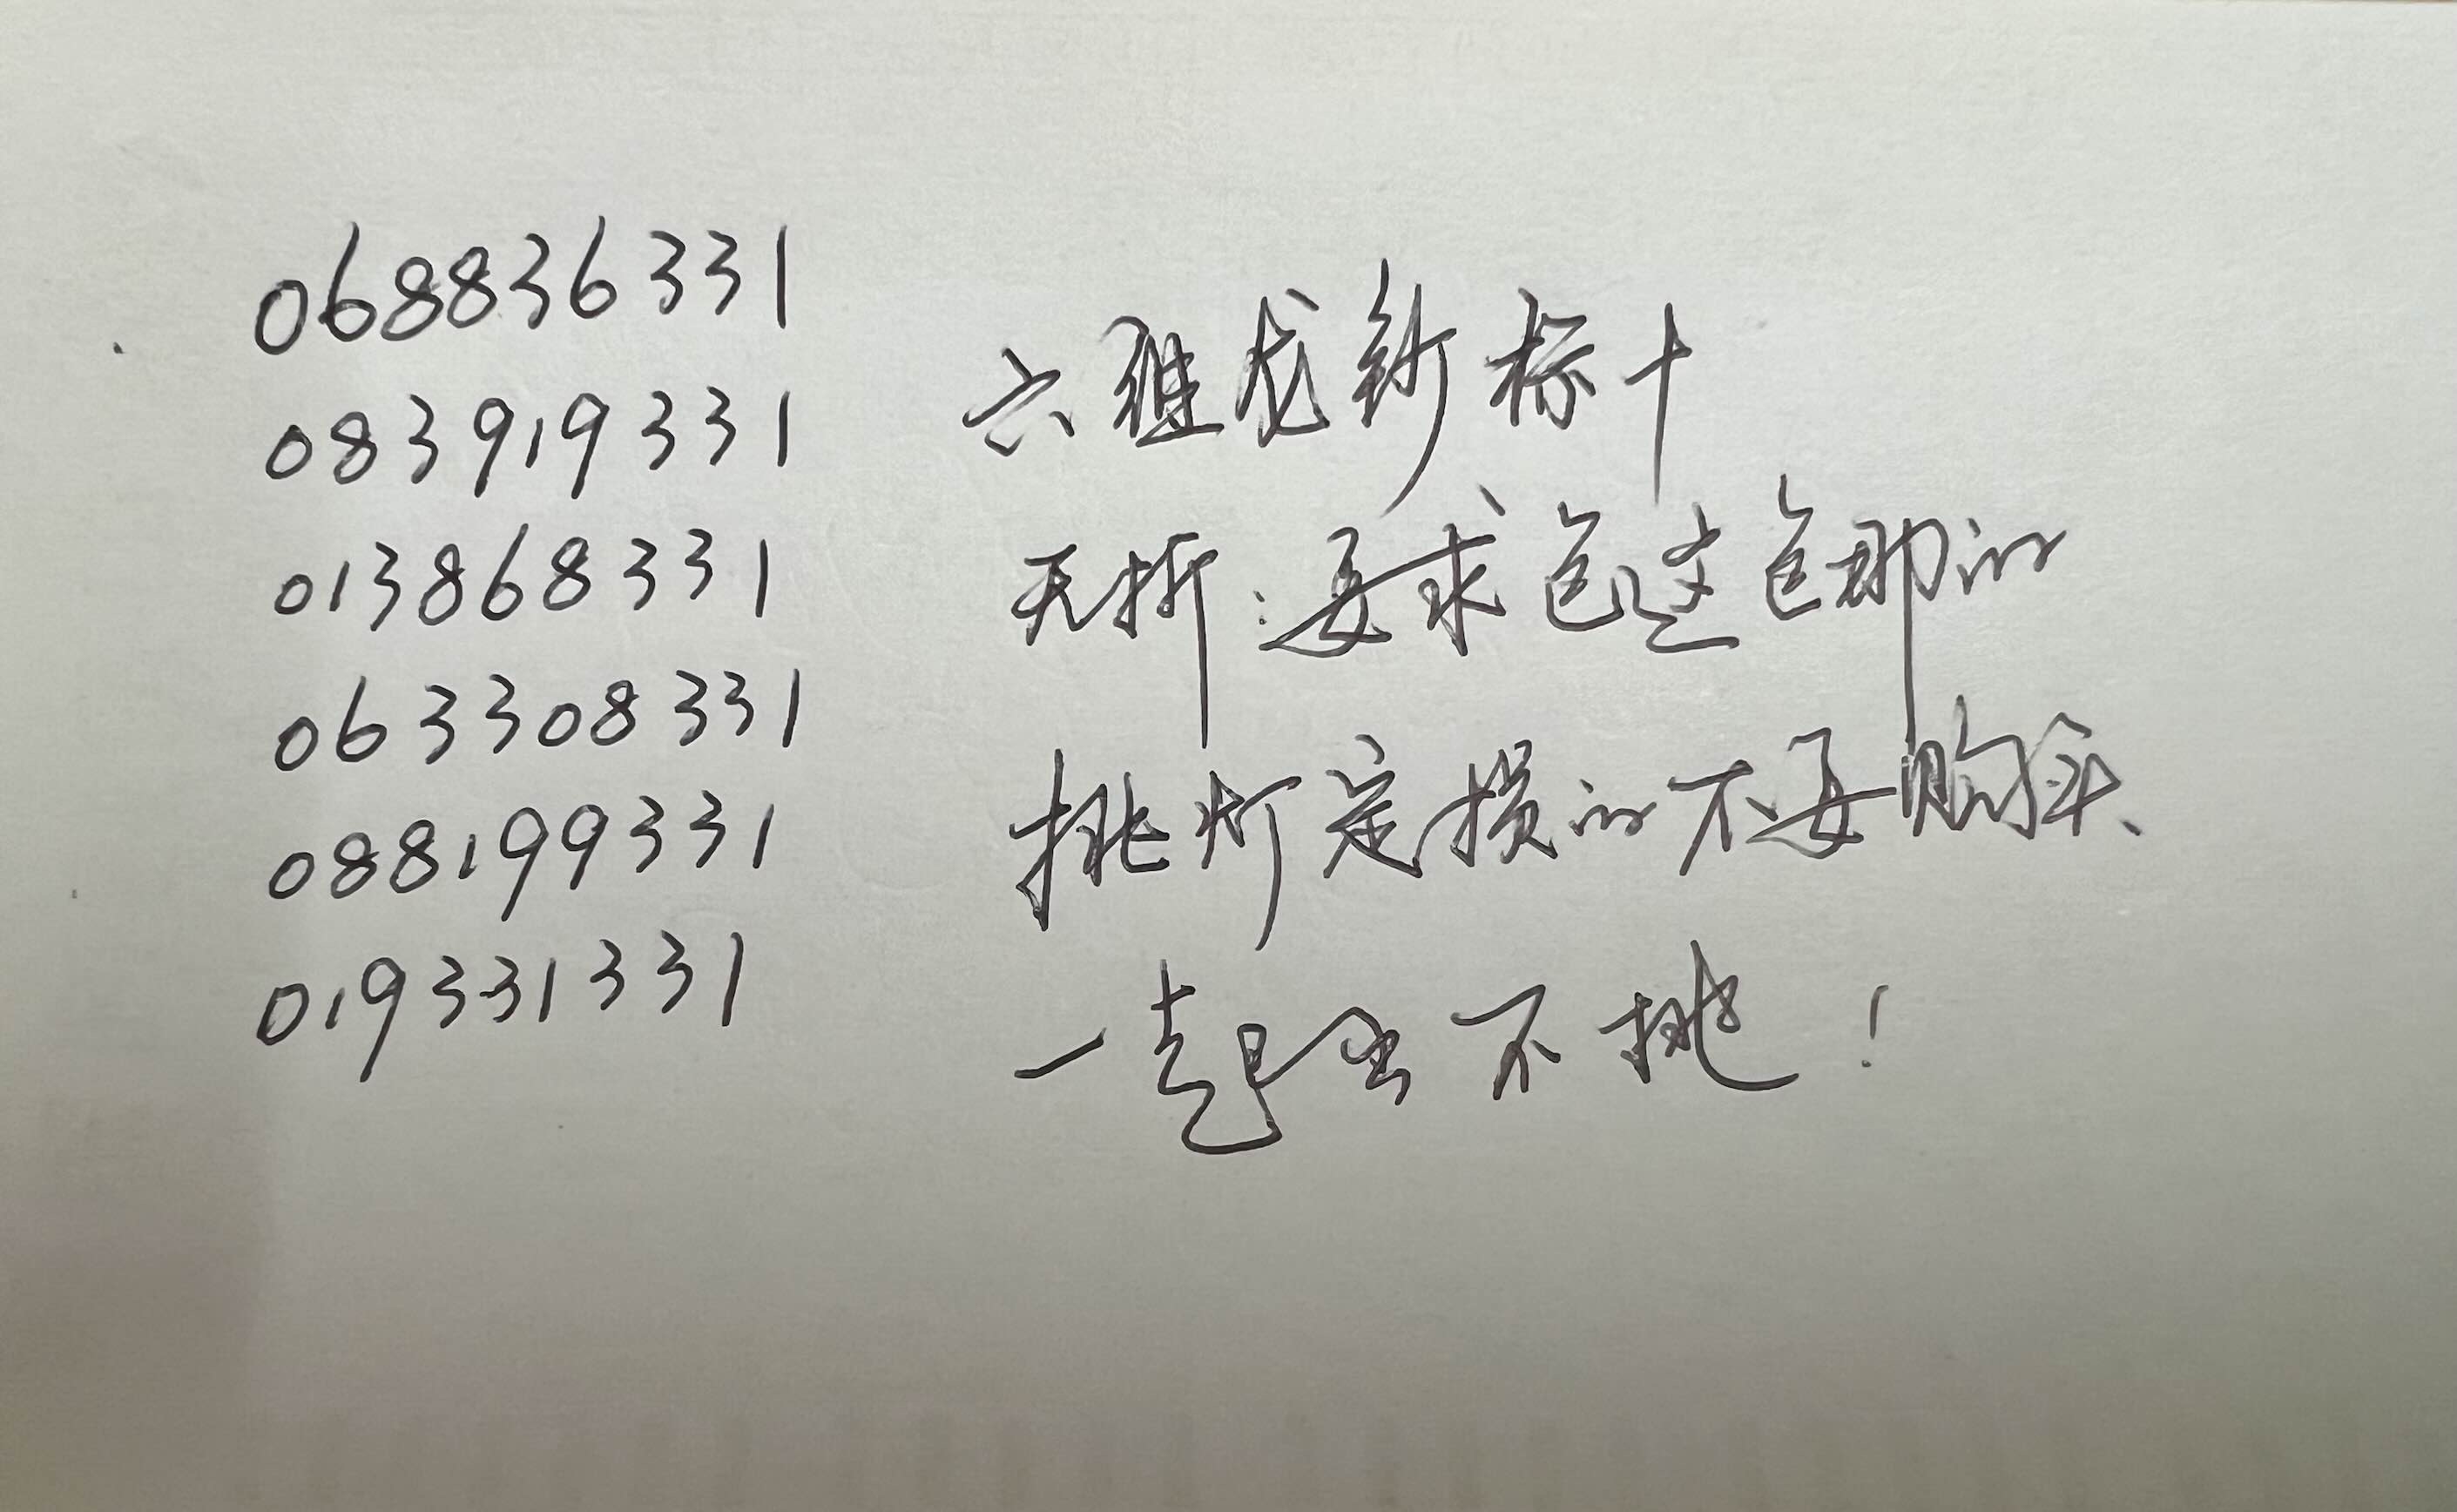 068836331
083919331
013868331
063308331
088199331
019331331
六雅龙钞标十
无折:要求包这包那的
挑灯定损的不要购买、
一起出不挑!